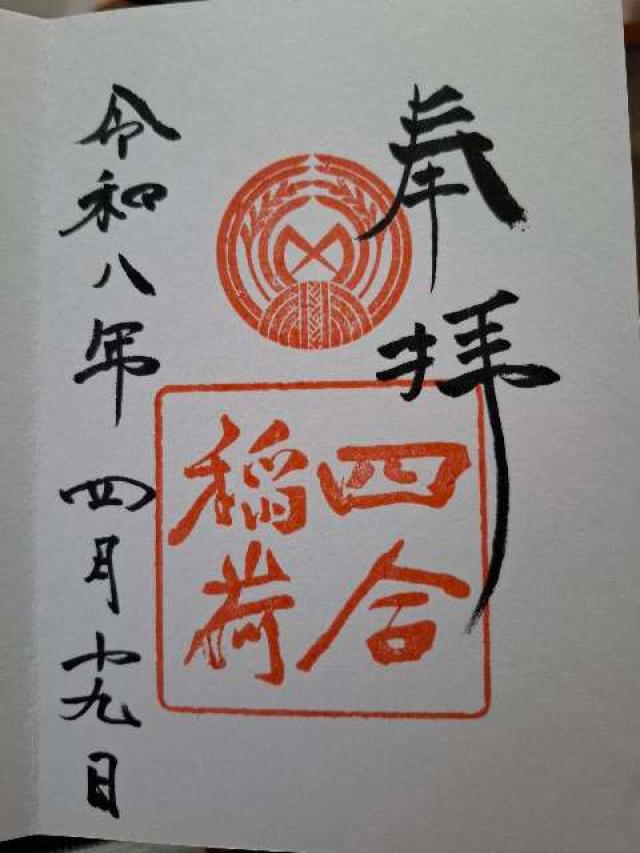 奉拝
四合
稲荷
令和八年 四月廿九日